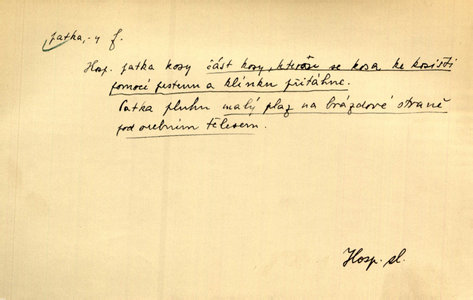 patka, -y f.
Hosp. patka kosy část kosy, kterou se kosa ke kosišti
pomocí prstenu a klínku přitáhne.
Patka pluhu malý plaz na brázdové straně
pod orebním tělesem.
Hosp. sl.